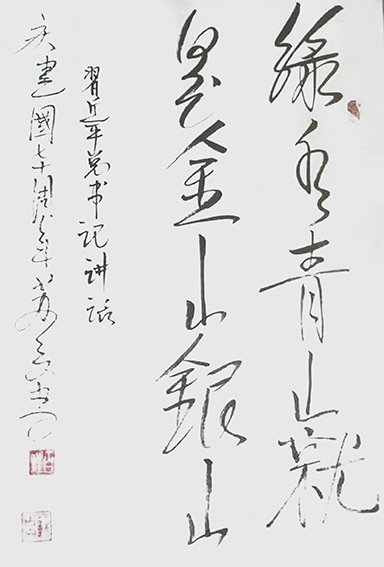 绿水青山就
是金山銀山
習近平总书记讲话
庆建國七十周年